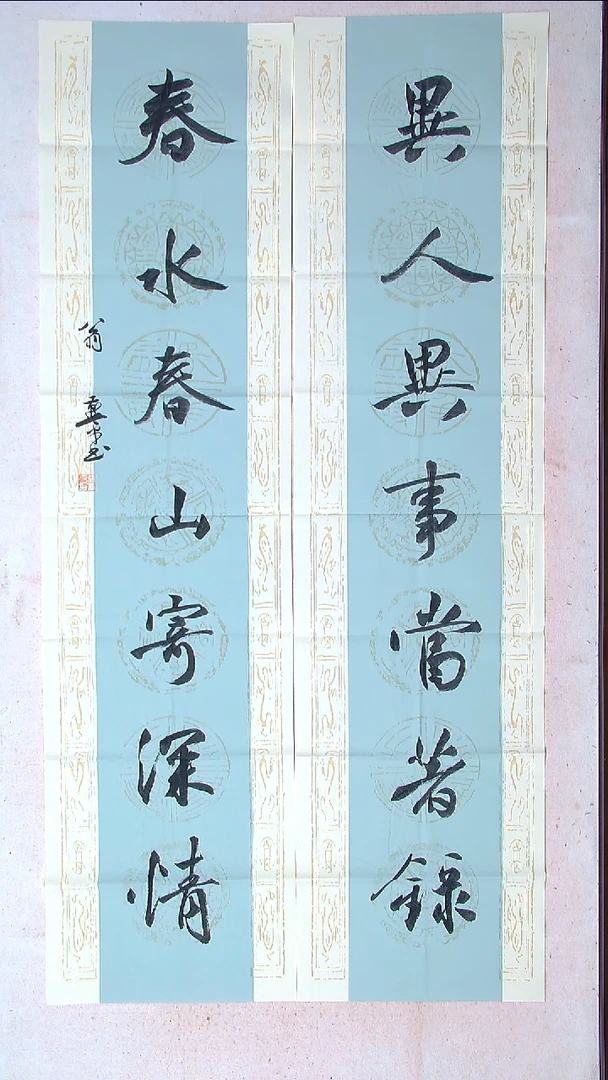 異人異事當著錄
春水春山寄深情
翁
書